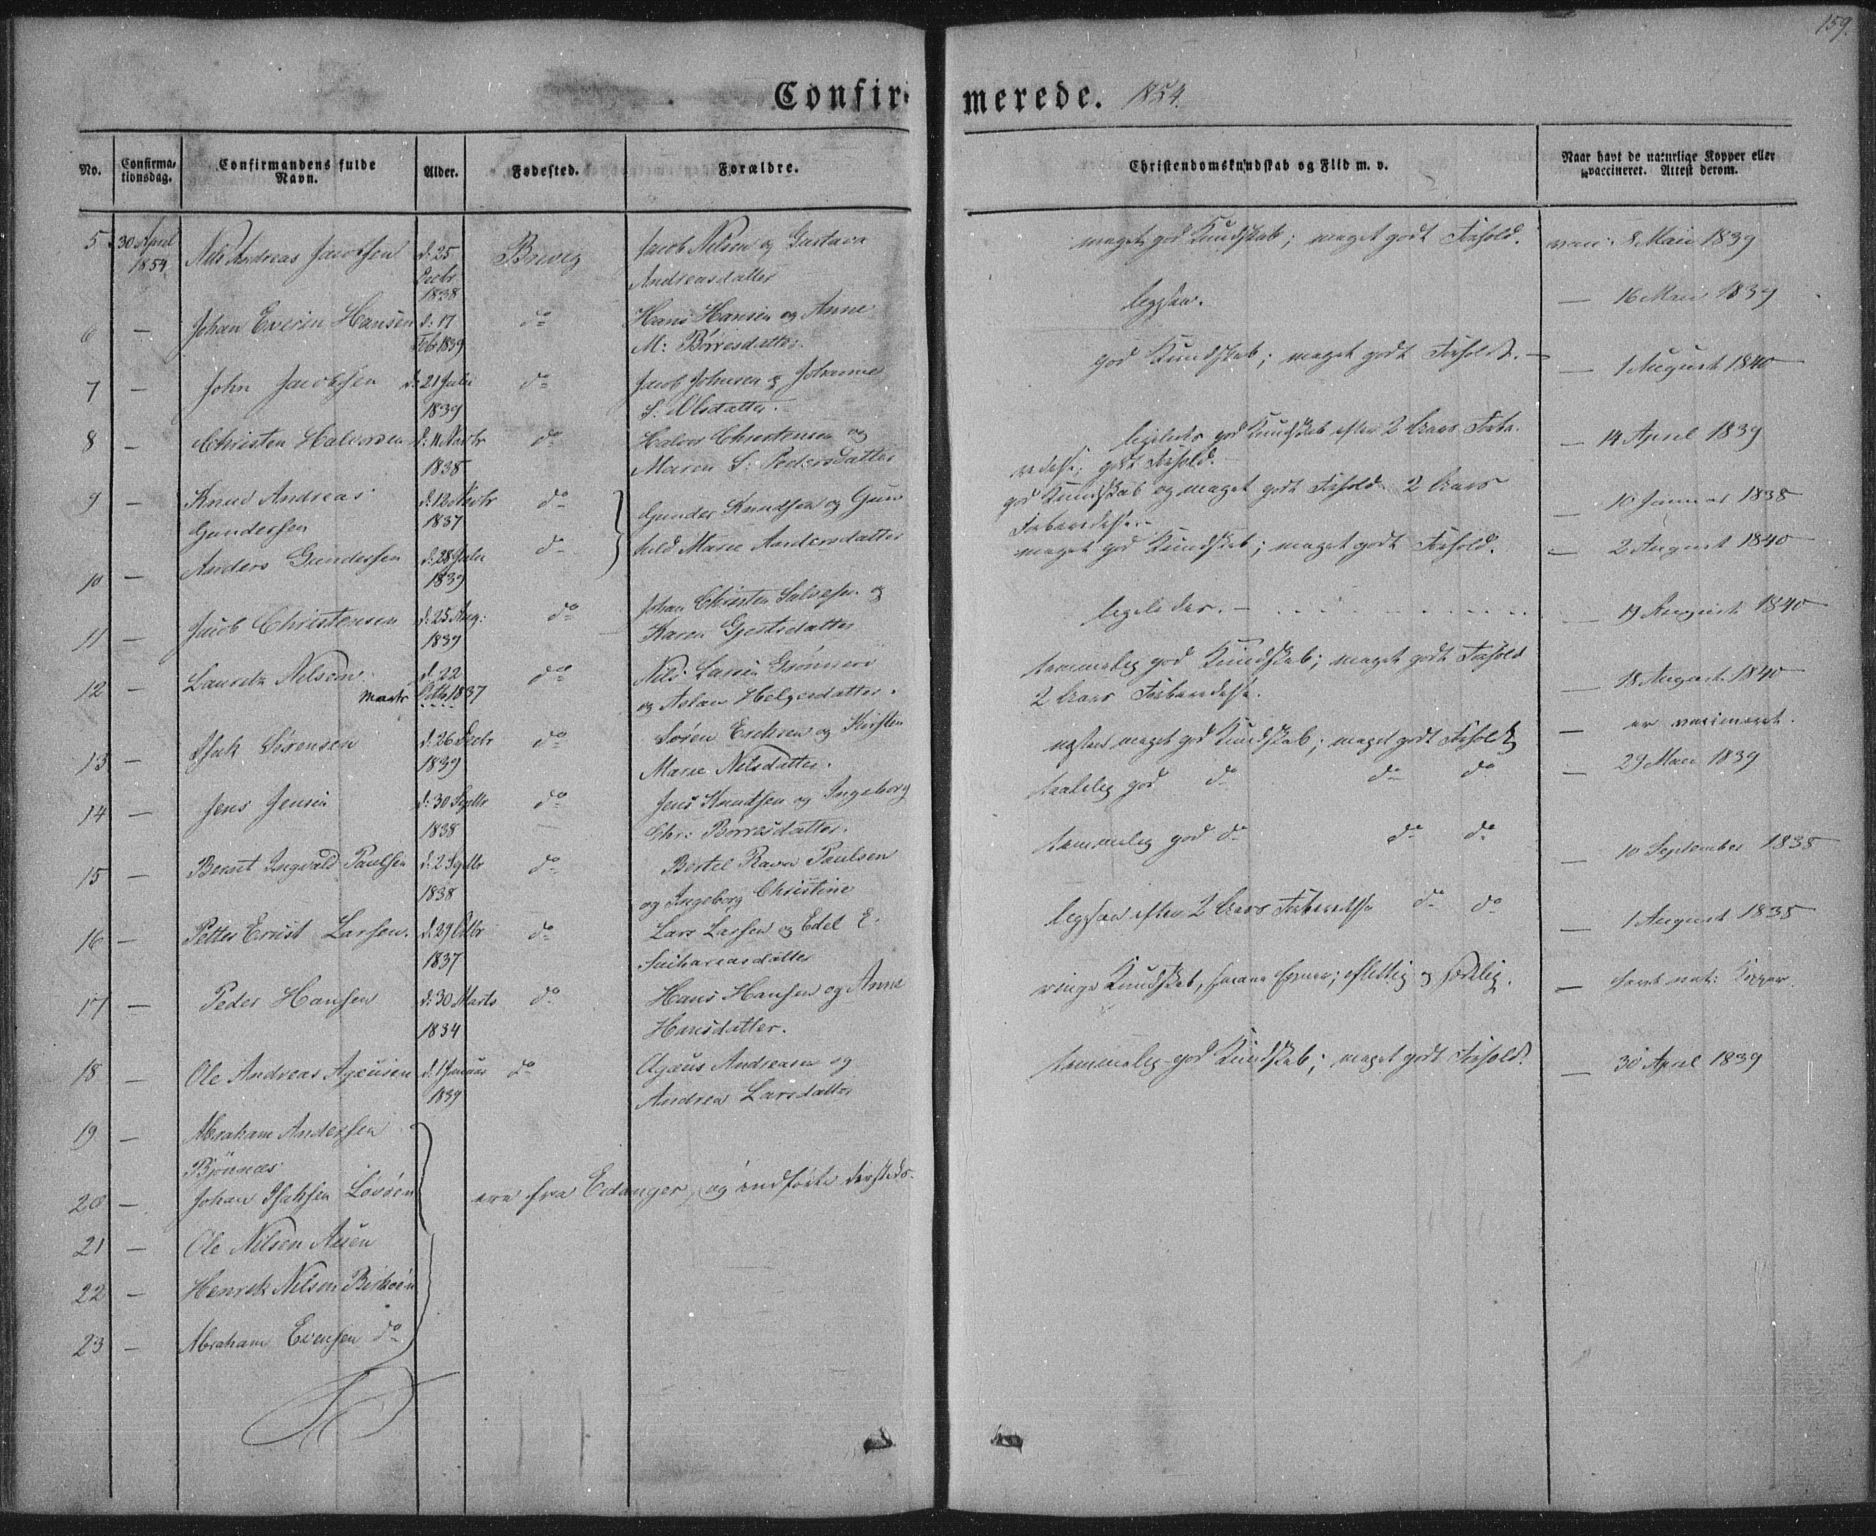 159.
Confirmerede. 1854.
No. Confirmationsdag. Confirmandens fulde Navn. Alder. Fødested. Forældre. Christendomskundskab og Flid m. v. Naar havt de naturlige Kopper eller vaccineret. Attest derom.
5 30 April 1854 Nils Andreas Jacobsen d: 25 Decbr 1838 Brevig Jacob Nilsen og Gustava Andreasdatter maget god Kundskab; maget godt Forhold. vacc: 8 Mai 1839
6 — Johan Everin Hansen d: 17 Febr 1839 do Hans Hansen og Anne M: Börresdatter ligesaa. — 16 Mai 1839
7 — John Jacobsen d: 21 Juli 1839 do Jacob Johnsen og Johanne S. Olsdatter. god Kundskab; maget godt Forhold. — — 1 August 1840
8 — Christen Halvorsen d: 11 1838 do Halvor Christensen og Maren S: Pedersdatter ligeledes god Kundskab efter 2 Aars Forberedelse; godt Forhold. — 14 April 1839
9 — Knud Andreas Gundersen d: 12 1837 do Gunder Knudsen og Gunhild Marie Andersdatter god Kundskab og maget godt Forhold 2 Aars Forberedelse. — 10 Januar 1838
10 — Anders Gundersen d: 28 Juli 1839 do maget god Kundskab; maget godt Forhold. — 2 August 1840
11 — Jacob Christensen d: 25 Aug: 1839 do Johan Christen Salvesen og Karen Gjertsdatter ligeledes. — 19 August 1840
12 — Lauritz Nilsen d. 22 Octb. 1837 Marts do Nils Larsen Grönnerö og Aslau Helgesdatter. temmelig god Kundskab; maget godt Forhold 2 Aars Forberedelse. — 18 August 1840
13 — Isak Sörensen d: 26 Febr 1839 do Sören Eriksen og Kirsten Marie Nilsdatter. næsten maget god Kundskab; maget godt Forhold — er vaccineret.
14 — Jens Jensen d: 30 Septb 1838 do Jens Knudsen og Ingeborg Chr: Börresdatter. taalelig god do do do — 29 Mai 1839
15 — Bernt Ingvald Paulsen d: 2 Septbr 1838 do Bertel Ravn Paulsen og Ingeborg Christine temmelig god do do do — 10 September 1838
16 — Petter Ernst Larsen. d: 29 Octbr 1837 do Lars Larsen og Edel E. Sachariasdatter ligesaa efter 2 Aars Forberedelse do do — 1 August 1838
17 — Peder Hansen d: 30 Marts 1834 do Hans Hansen og Anne Hansdatter. ringe Kundskab, svage Evner; flittig og sædelig. — havt nat: Kopper.
18 — Ole Andreas Agæusen d. 1 Januar 1839 do Agæus Andreasen og Andrea Larsdatter temmelig god Kundskab; maget godt Forhold. — 30 April 1839
19 — Abraham Andersen Björnnæs
20 — Johan Isaksen Lövöen ere fra Eidanger, og indførte dersteds.
21 — Ole Nilsen Aasen
22 — Henrik Nilsen Birköen
23 — Abraham Evensen do